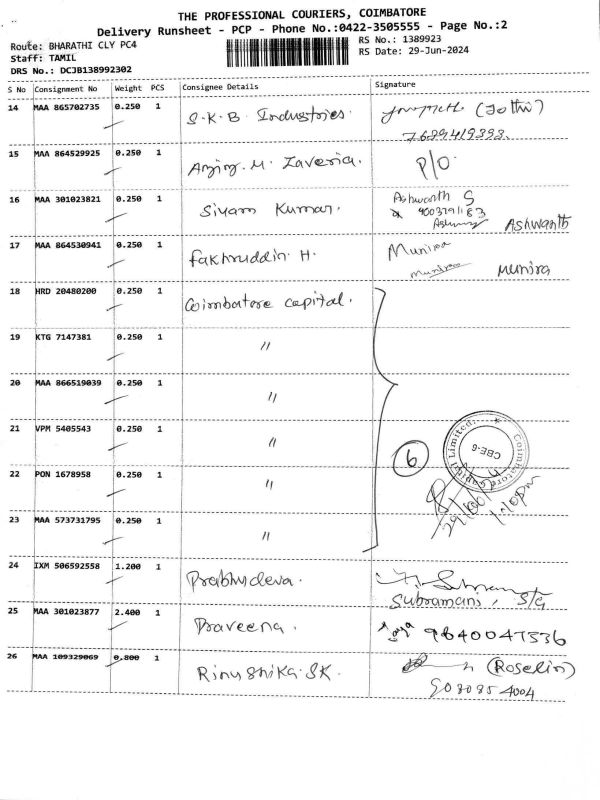 THE PROFESSIONAL COURIERS, COIMBATORE
Delivery Runsheet - PCP - Phone No.:0422-3505555 - Page No.:2
Route: BHARATHI CLY PC4
RS No.: 1389923
Staff: TAMIL
RS Date: 29-Jun-2024
DRS No.: DCJB138992302
S No Consignment No Weight PCS Consignee Details Signature
14 MAA 865702735 0.250 1 S.K.B. Industries. (Jothi)
7639419393.
15 MAA 864529925 0.250 1 Zaveria. P/O.
16 MAA 301023821 0.250 1 Sivam Kumar. Ashwanth S
Ashwanth
17 MAA 864530941 0.250 1 Fakhruddin H. Munira
Munira Munira
18 HRD 20480200 0.250 1 Coimbatore capital.
19 KTG 7147381 0.250 1 "
20 MAA 866519039 0.250 1 "
21 VPM 5405543 0.250 1 "
Coimbatore Capital Limited. CBE-6
6
22 PON 1678958 0.250 1 "
23 MAA 573731795 0.250 1 "
24 IXM 506592558 1.200 1 Prabhudeva.
Subramani, S/G
25 MAA 301023877 2.400 1 Praveena. Jaya 9840047336
26 MAA 109329069 0.800 1 Rinushika.SK. (Roselin)